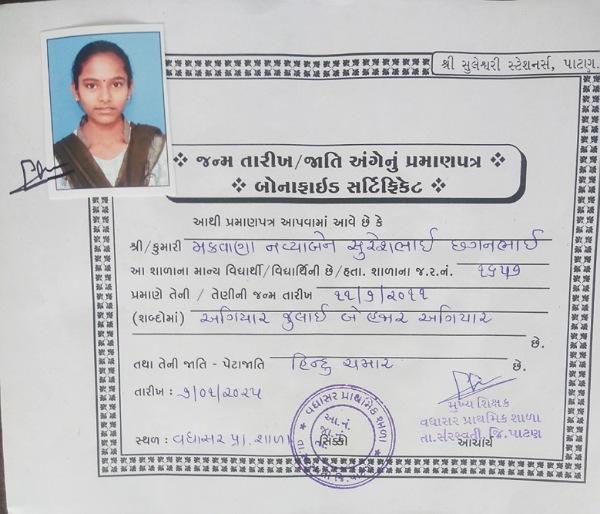 શ્રી સુલેશ્વરી સ્ટેશનર્સ, પાટણ.
❖ જન્મ તારીખ/જાતિ અંગેનું પ્રમાણપત્ર ❖
❖ બોનાફાઇડ સર્ટિફિકેટ ❖
આથી પ્રમાણપત્ર આપવામાં આવે છે કે
શ્રી/કુમારી મકવાણા નવ્યાબેન સુરેશભાઈ છગનભાઈ
આ શાળાના માન્ય વિદ્યાર્થી/વિદ્યાર્થિની છે/હતા. શાળાના જ.ર.નં. ૧૬૫૧
પ્રમાણે તેની / તેણીની જન્મ તારીખ ૧૧/૭/૨૦૧૧
(શબ્દોમાં) અગિયાર જુલાઈ બે હજાર અગિયાર
છે.
તથા તેની જાતિ - પેટાજાતિ હિન્દુ ચમાર છે.
તારીખ : ૭/૦૧/૨૦૨૫
સ્થળ : વધાસર પ્રા. શાળા
સિક્કો
વધાસર પ્રાથમિક શાળા
મુખ્ય શિક્ષક
વધાસર પ્રાથમિક શાળા
તા.સરસ્વતી જિ.પાટણ
આચાર્ય